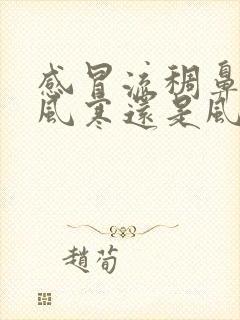 感冒流稠鼻
風寒還是風
趙荀